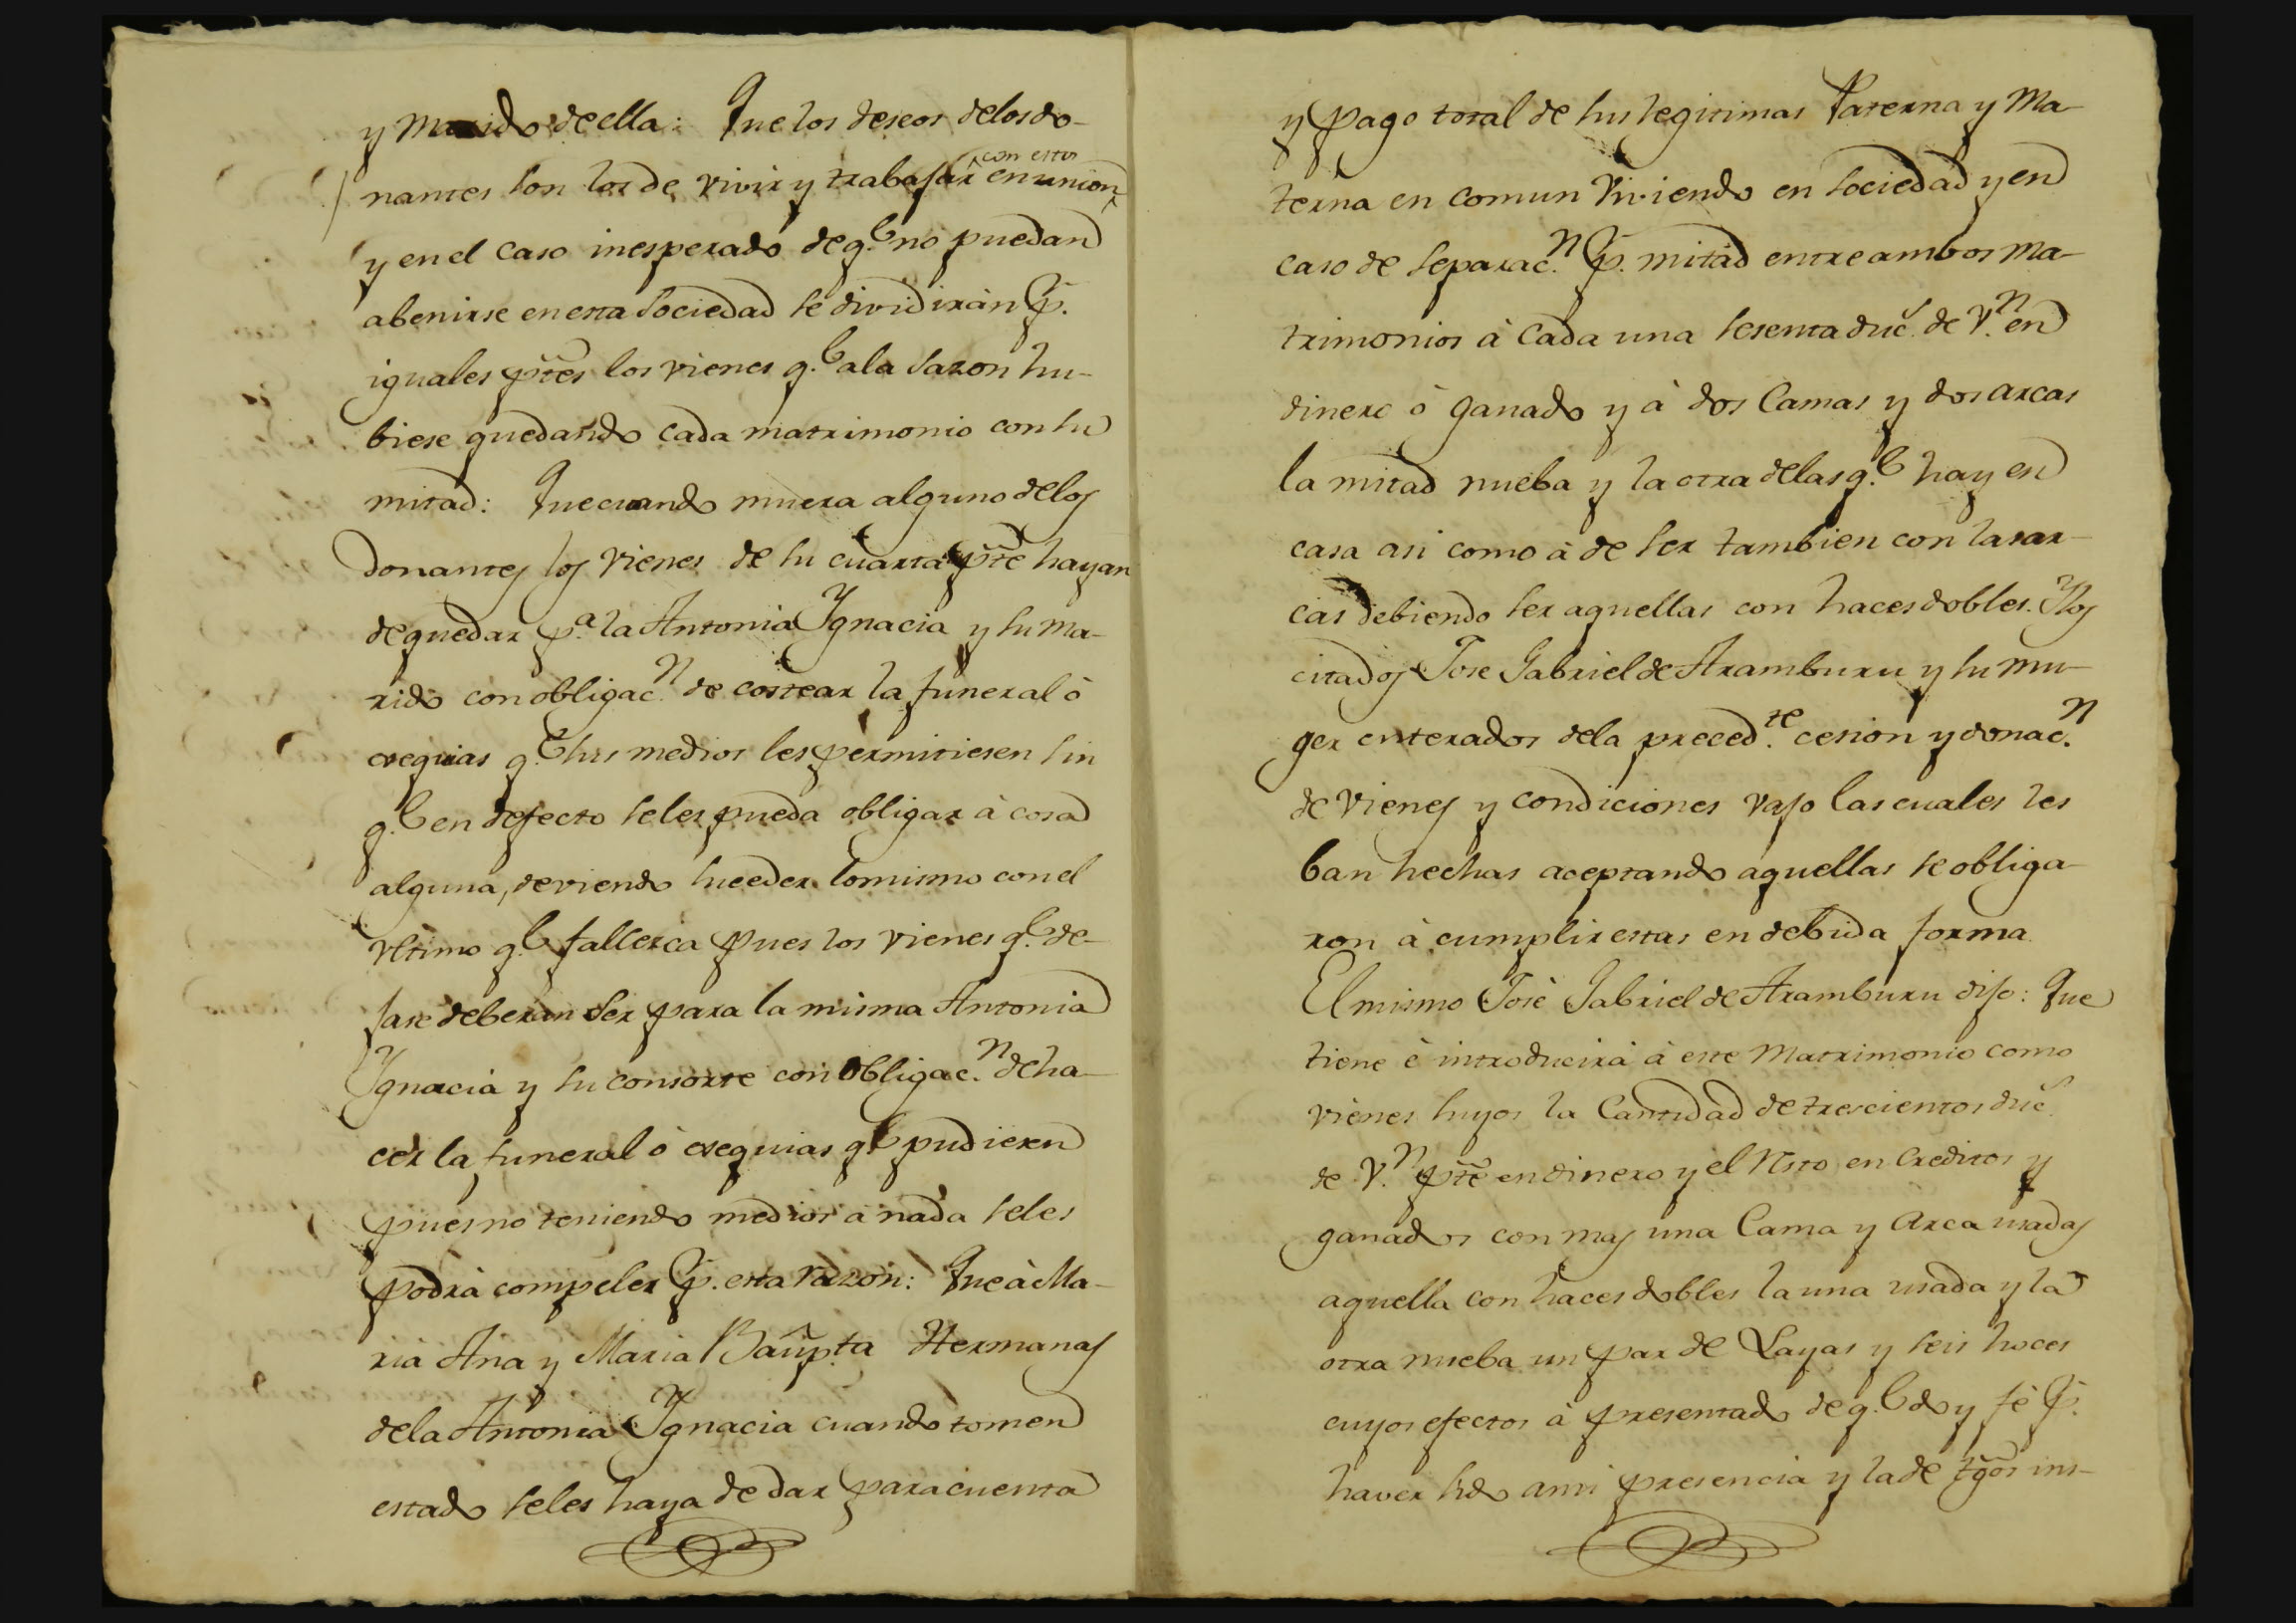 y Marido de ella: Que los deseos de los do-
nantes son los de vivir y trabajar ^con estos en union
y en el caso inesperado de q.e no puedan
abenirse en esta sociedad se dividiràn p.
iguales ptes los vienes q.e a la sazon hu-
biese quedando cada matrimonio con su
mitad: Que cuando muera alguno de los
donantes los vienes de su cuarta pte hayan
de quedar p.a la Antonia Ygnacia y su ma-
rido con obligac.n de costear la funeral ò
exequias q.e sus medios les permitiesen sin
q.e en defecto se les pueda obligar à cosa
alguna, deviendo suceder lo mismo con el
vltimo q.e fallezca pues los vienes q.e de-
jase deberan ser para la misma Antonia
Ygnacia y su consorte con obligac.n de ha-
cer la funeral ò exequias q.e pudieren
pues no teniendo medios à nada se les
podrà compeler p. esta razon: Que à Ma-
ria Ana y Maria Baup.ta Hermanas
de la Antonia Ygnacia cuando tomen
estado se les haya de dar para cuenta
y pago total de sus legitimas Paterna y Ma-
terna en comun viviendo en sociedad y en
caso de separac.n p. mitad entre ambos ma-
trimonios à cada una sesenta duc. de V.n en
dinero ò ganado y à dos Camas y dos arcas
la mitad nueba y la otra de las q.e hay en
casa asi como à de ser tambien con las ar-
cas debiendo ser aquellas con haces dobles. Y los
citados Jose Gabriel de Aramburu y su mu-
ger enterados de la preced.te cesion y donac.n
de vienes y condiciones vajo las cuales les
ban hechas aceptando aquellas se obliga-
ron à cumplir estas en debida forma.
El mismo Josè Gabriel de Aramburu dijo: Que
tiene è introducirà à este Matrimonio como
vienes suyos la Cantidad de trescientos duc.
de V.n pte en dinero y el resto en Creditos y
ganados con mas una Cama y Arca usadas
aquella con haces dobles la una usada y la
otra nueba un par de Layas y seis hoces
cuyos efectos à presentado de q.e doy fè p.
haver sido a mi presencia y la de tgos ins-